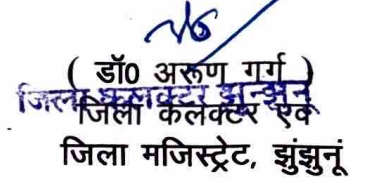 ( डॉ0 अरूण गर्ग )
जिला कलक्टर झुन्झुनू
जिला कलक्टर एवं
जिला मजिस्ट्रेट, झुंझुनूं